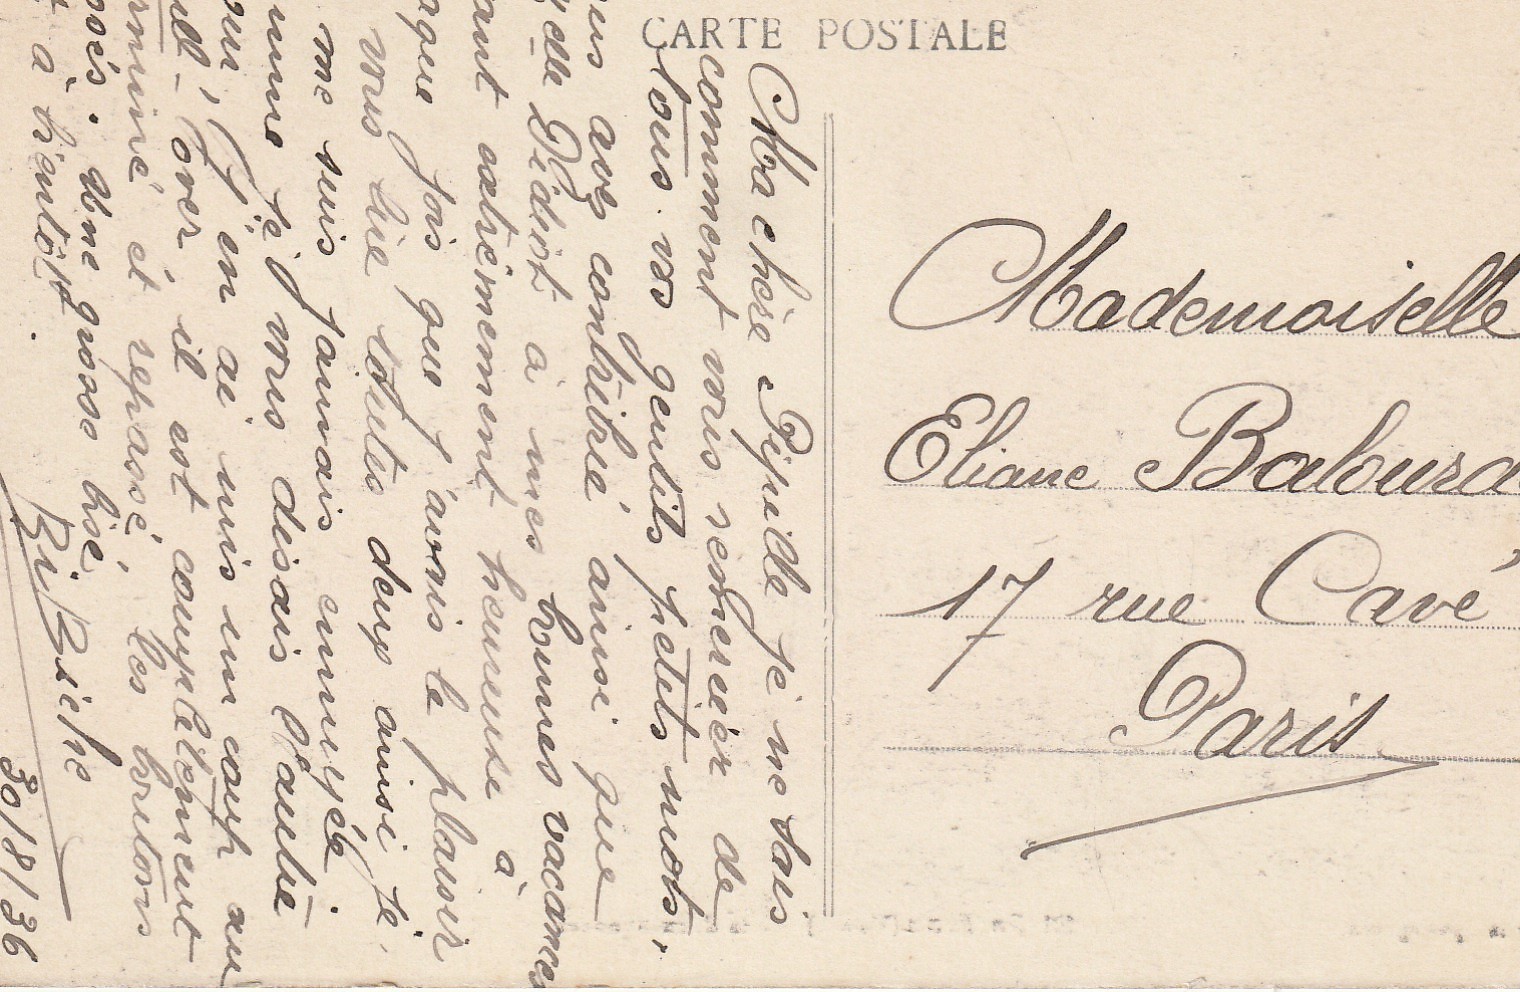 CARTE POSTALE
Ma chère Pépille je ne sais
comment vous remercier de
tous vos gentils petits mots,
vous avez contribué ainsi que
Didot à mes bonnes vacances
étant extrêmement heureuse à
chaque fois que j'avais le plaisir
vous lire toutes deux ainsi je
me suis jamais ennuyée.
comme je vous disais l'autre
jour, j'en ai mis un coup au
pull-over il est complètement
terminé et repassé les boutons
Une grosse bise,
et à bientôt.
BiBiche
30/8/36
Mademoiselle
Eliane
17 rue Cavé
Paris